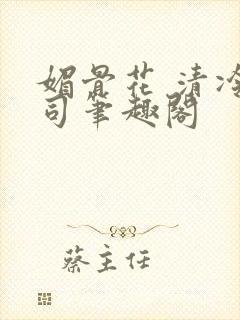 媚骨花 清冷
司笔趣阁
蔡主任